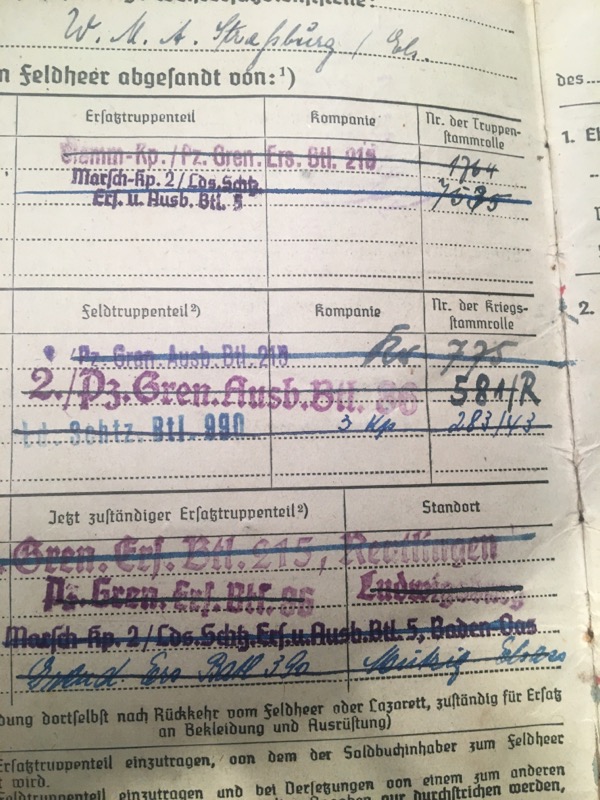 W. M. A. Straßburg / Els.
n Feldheer abgesandt von:¹)
Ersatztruppenteil Kompanie Nr. der Truppen-
stammrolle
Stamm-Kp./Pz. Gren. Ers. Btl. 215 1764
Marsch-Kp. 2/Lds. Schtz.
Ers. u. Ausb. Btl. 5
Feldtruppenteil²) Kompanie Nr. der Kriegs-
stammrolle
Pz. Gren. Ausb. Btl. 215 775
2./Pz. Gren. Ausb. Btl. 86 581/R
Ld. Schtz. Btl. 990 3 Kp 283/43
Jetzt zuständiger Ersatztruppenteil²) Standort
Gren. Ers. Btl. 215, Reutlingen
Pz. Gren. Ers. Btl. 86 Ludwigsburg
Marsch-Kp. 2/Lds. Schtz. Ers. u. Ausb. Btl. 5, Baden-Oos
Ers
dung dortselbst nach Rückkehr vom Feldheer oder Lazarett, zuständig für Ersatz
an Bekleidung und Ausrüstung)
Ersatztruppenteil einzutragen, von dem der Soldbuchinhaber zum Feldheer
t wird.
Feldtruppenteil einzutragen und bei Versetzungen von einem zum anderen
nur durchstrichen werden,
des
1. Eh
2.